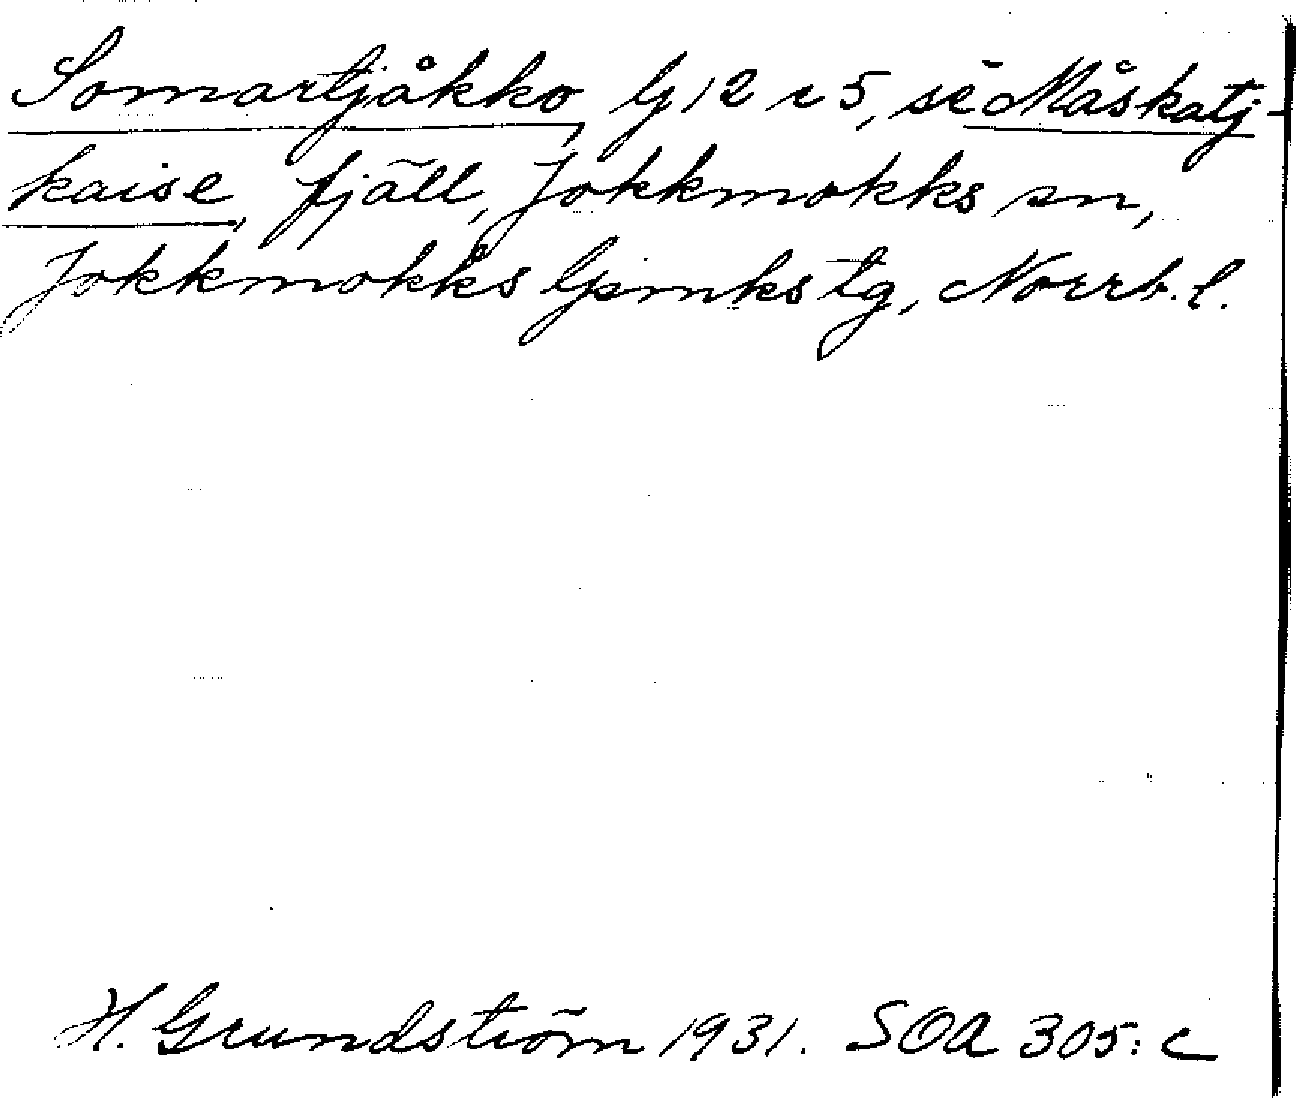 Somartjåkko, G 12 r 5, se Måskatj-
kaise, fjäll, Jokkmokks sn,
Jokkmokks lpmks tg, Norrb. l.
H. Grundström 1931. SOA 305: c